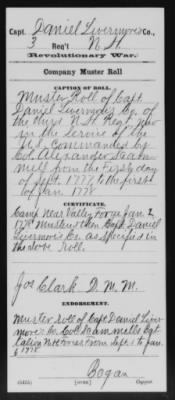 Capt. Daniel Livermore's Co.,
3 Reg't N. H.
Revolutionary War.
Company Muster Roll
CAPTION OF ROLL.
Muster Roll of Capt
Daniel Livermores Co. of
the third N.H. Regt now
in the Service of the
U.S. commanded by
Col. Alexander Scam
mell from the first day
of Sept. 1777 to the first
of Jan. 1778
CERTIFICATE.
Camp near Valley Forge Jan. 2,
1778 Mustered then Capt Daniel
Livermore's Co. as specified in
the above Roll.
Jos Clark D. M. M.
ENDORSEMENT.
Muster Roll of Capt Daniel Liver
more's Co. Col. Scammells Rgt
from Sept. 1 to Jan.
1778
Bogan
Copyist.